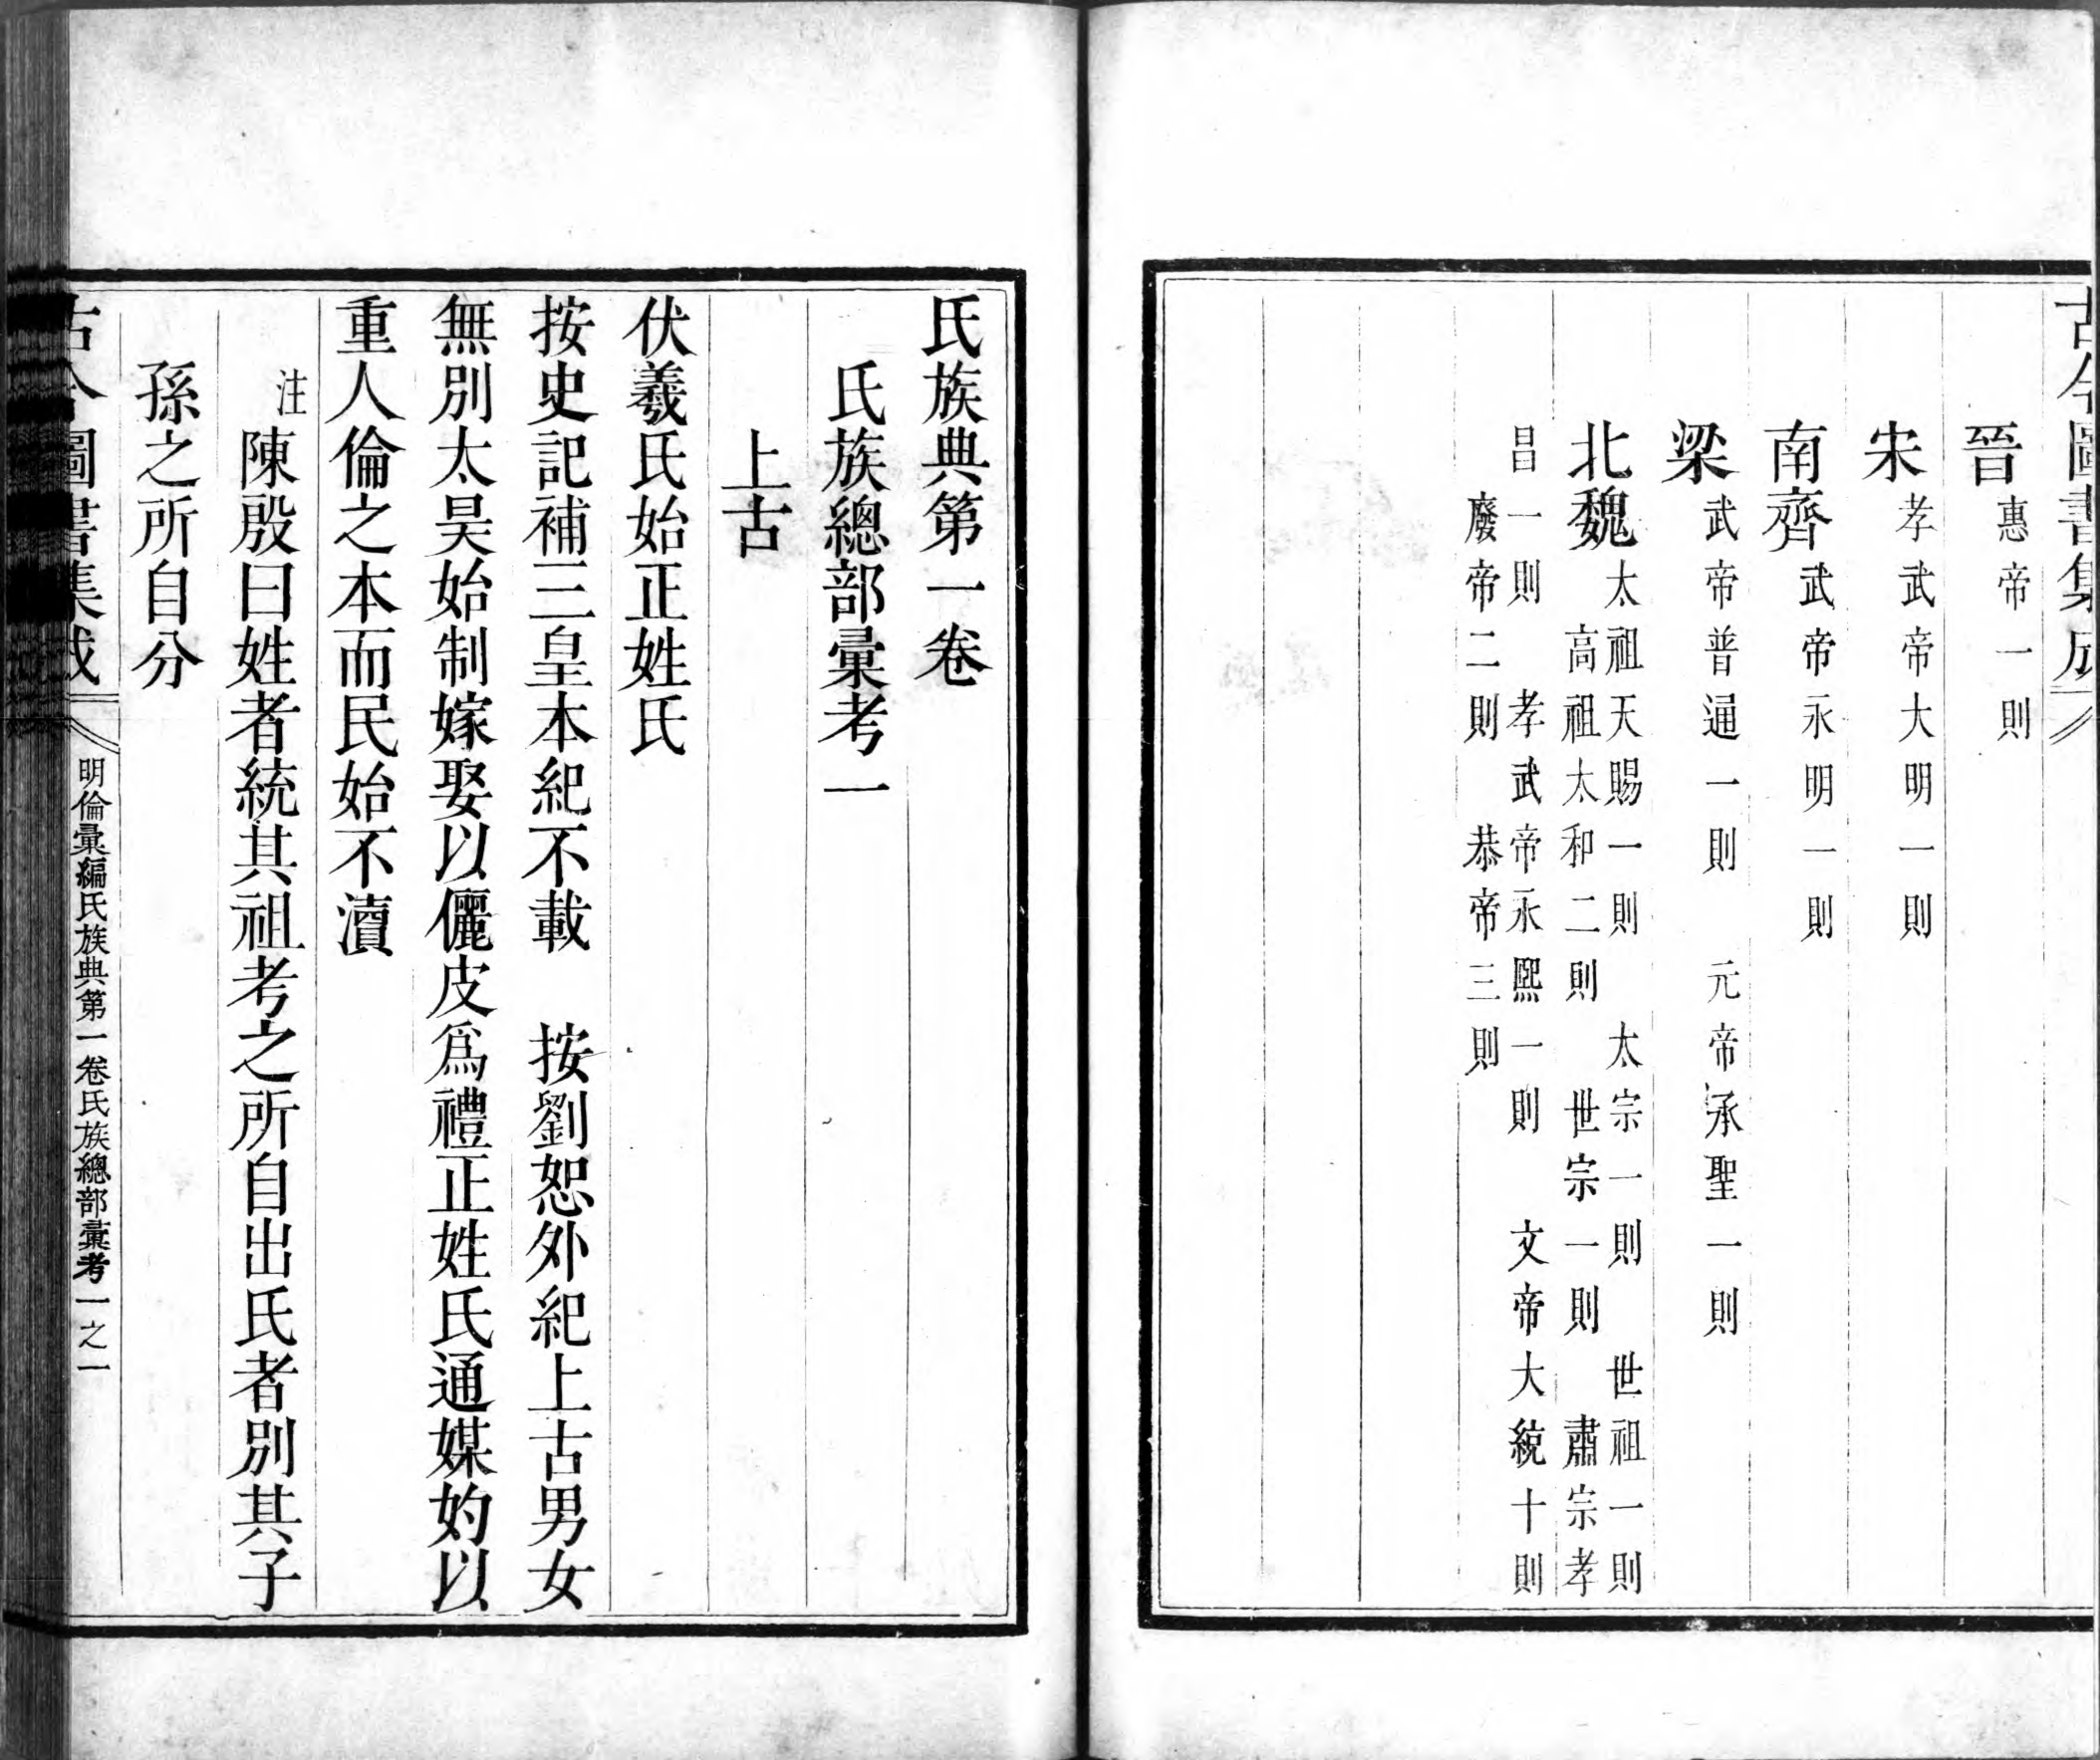 古今圖書集成
晉惠帝一則
宋孝武帝大明一則
南齊武帝永明一則
梁武帝普通一則　元帝承聖一則
北魏太祖天賜一則　太宗一則　世祖一則
高祖太和二則　世宗一則　肅宗孝
昌一則　孝武帝永熙一則　文帝大統十則
廢帝二則　恭帝三則
氏族典第一卷
氏族總部彙考一
上古
伏羲氏始正姓氏
按史記補三皇本紀不載　按劉恕外紀上古男女
無別太昊始制嫁娶以儷皮爲禮正姓氏通媒妁以
重人倫之本而民始不瀆
注陳殷曰姓者統其祖考之所自出氏者別其子
孫之所自分
古今圖書集成
明倫彙編氏族典第一卷氏族總部彙考一之一